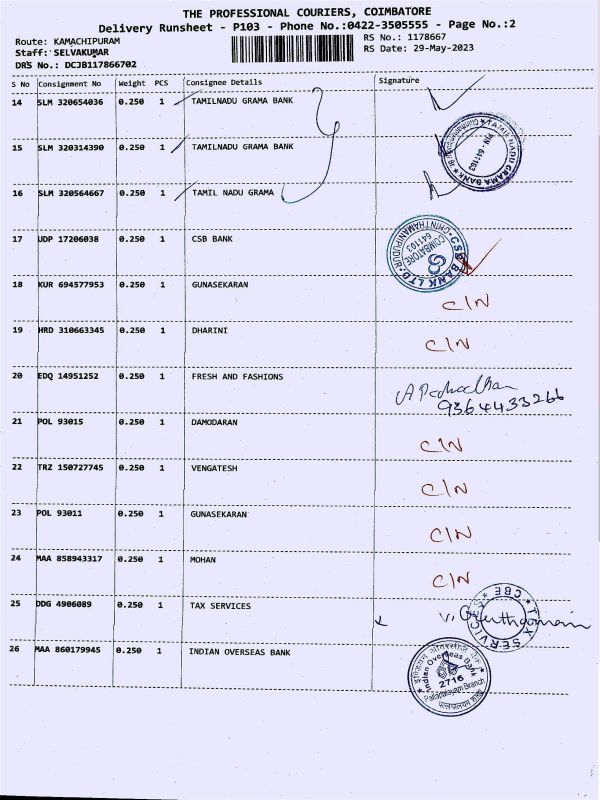 THE PROFESSIONAL COURIERS, COIMBATORE
Delivery Runsheet - P103 - Phone No.:0422-3505555 - Page No.:2
Route: KAMACHIPURAM RS No.: 1178667
Staff: SELVAKUMAR RS Date: 29-May-2023
DRS No.: DCJB117866702
S No Consignment No Weight PCS Consignee Details Signature
14 SLM 320654036 0.250 1 TAMILNADU GRAMA BANK
15 SLM 320314390 0.250 1 TAMILNADU GRAMA BANK
TAMIL NADU GRAMA BANK
PIN - 641103
16 SLM 320564667 0.250 1 TAMIL NADU GRAMA
17 UDP 17206038 0.250 1 CSB BANK
CSB BANK LTD. CHINTHAMANIPUDUR
COIMBATORE
641103
18 KUR 694577953 0.250 1 GUNASEKARAN C/N
19 HRD 310663345 0.250 1 DHARINI C/N
20 EDQ 14951252 0.250 1 FRESH AND FASHIONS
9364433266
21 POL 93015 0.250 1 DAMODARAN C/N
22 TRZ 150727745 0.250 1 VENGATESH C/N
23 POL 93011 0.250 1 GUNASEKARAN C/N
24 MAA 858943317 0.250 1 MOHAN C/N
25 DDG 4906089 0.250 1 TAX SERVICES
TAX SERVICES * CBE *
26 MAA 860179945 0.250 1 INDIAN OVERSEAS BANK
इण्डियन ओवरसीज़ बैंक
Indian Overseas Bank
2716
Pallapalayam Branch